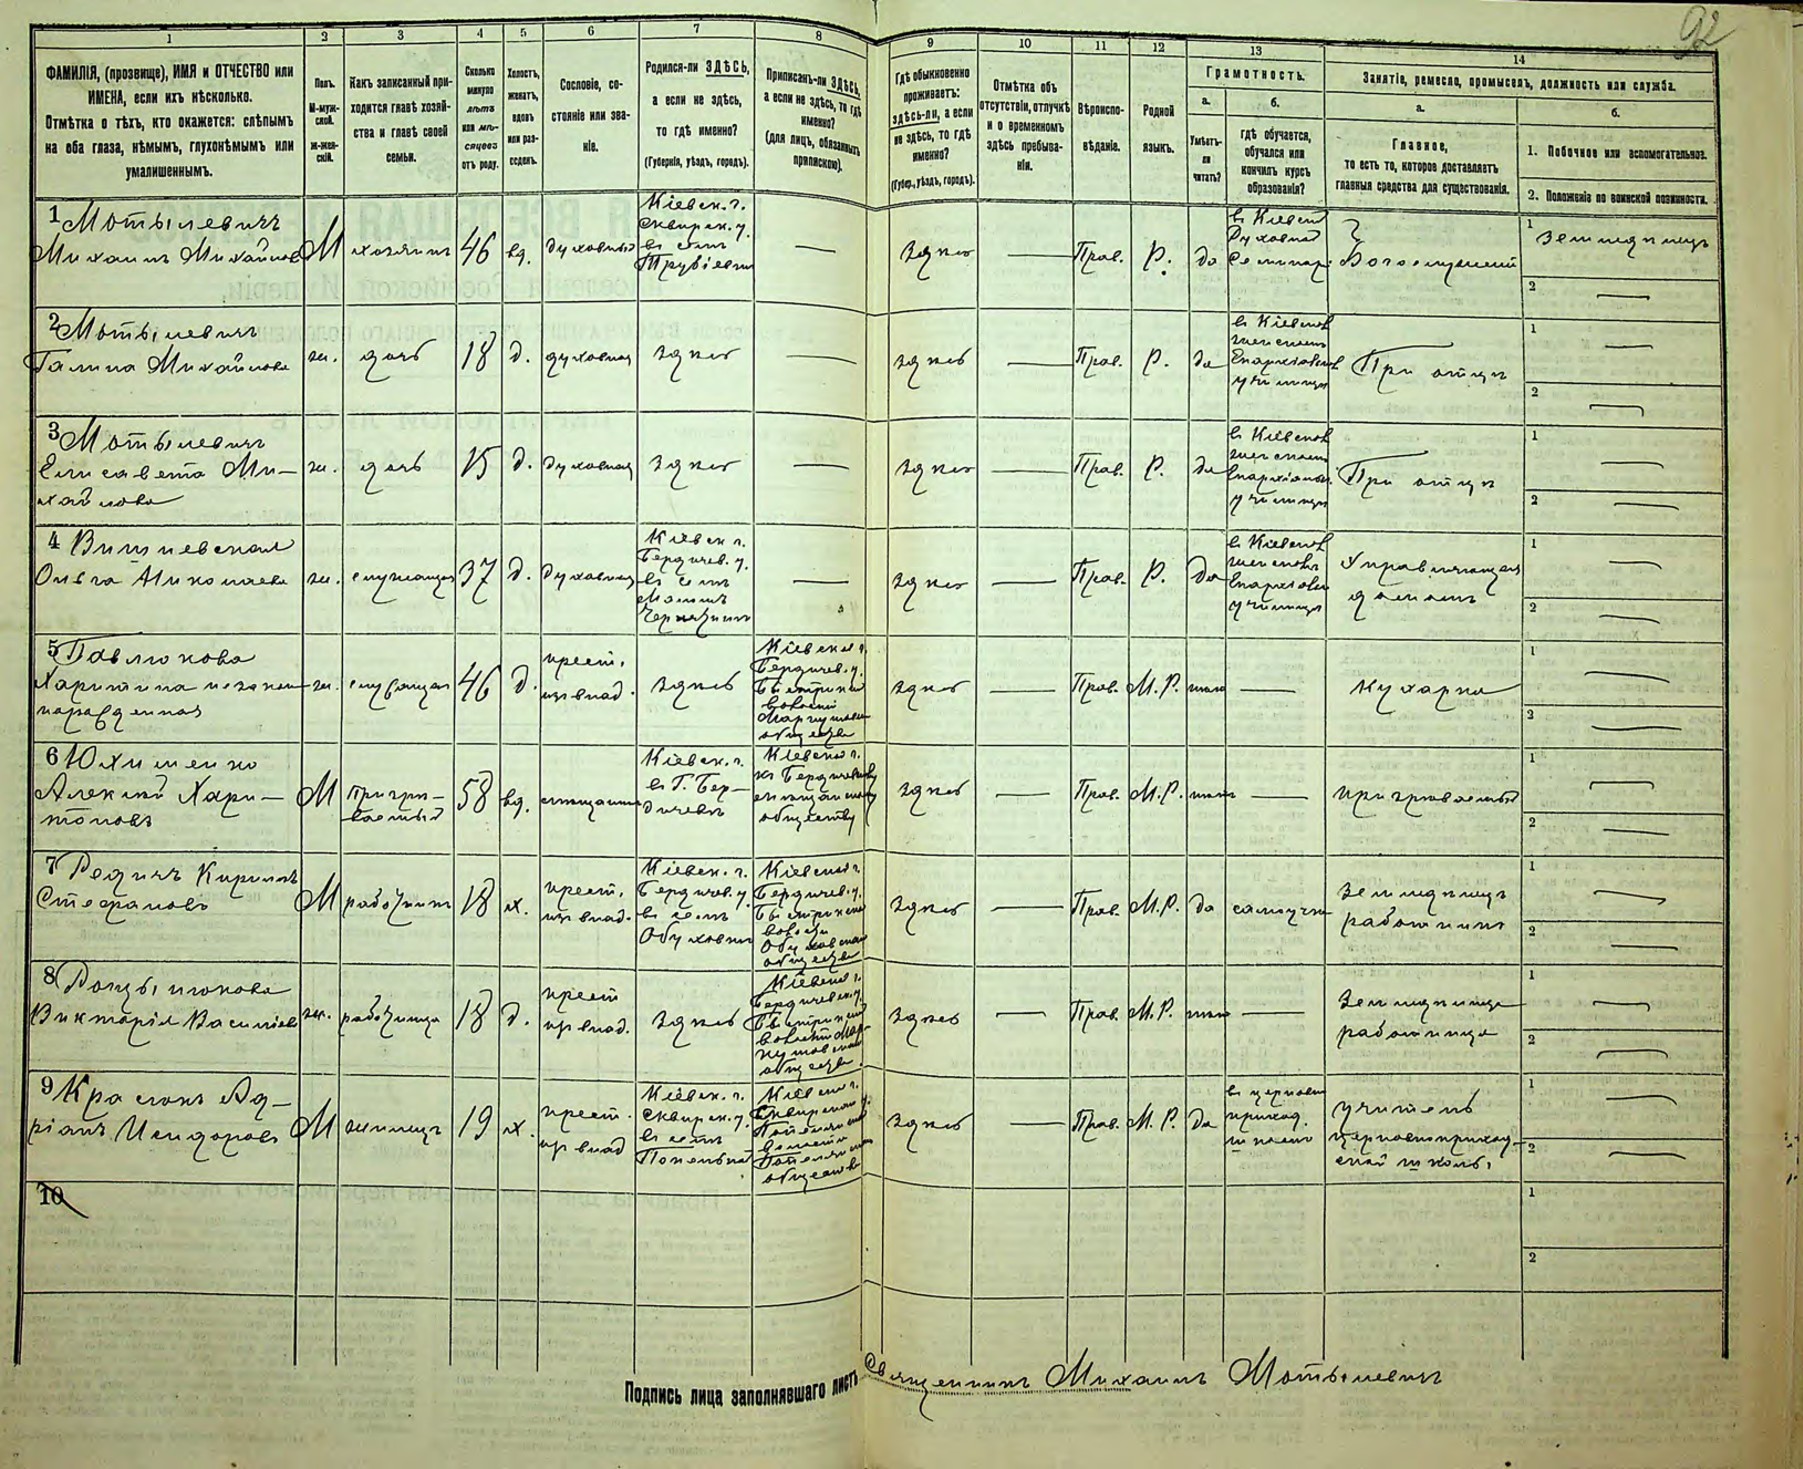 92
1 2 3 4 5 6 7 8 9 10 11 12 13 14
ФАМИЛІЯ, (прозвище), ИМЯ и ОТЧЕСТВО или
ИМЕНА, если ихъ нѣсколько.
Отмѣтка о тѣхъ, кто окажется: слѣпымъ
на оба глаза, нѣмымъ, глухонѣмымъ или
умалишеннымъ.
Полъ.
М-муж-
ской.
Ж-жен-
скій.
Какъ записанный при-
ходится главѣ хозяй-
ства и главѣ своей
семьи.
Сколько
минуло
лѣтъ
или мѣ-
сяцевъ
отъ роду.
Холостъ,
женатъ,
вдовъ
или раз-
веденъ.
Сословіе, со-
стояніе или зва-
ніе.
Родился-ли ЗДѢСЬ,
а если не здѣсь,
то гдѣ именно?
(Губернія, уѣздъ, городъ).
Приписанъ-ли ЗДѢСЬ,
а если не здѣсь, то гдѣ
именно?
(для лицъ, обязанныхъ
припискою).
Гдѣ обыкновенно
проживаетъ:
здѣсь-ли, а если
не здѣсь, то гдѣ
именно?
(Губер., уѣздъ, городъ).
Отмѣтка объ
отсутствіи, отлучкѣ
и о временномъ
здѣсь пребыва-
ніи.
Вѣроиспо-
вѣданіе.
Родной
языкъ.
Грамотность.
а.
Умѣетъ-
ли
читать?
б.
гдѣ обучается,
обучался или
кончилъ курсъ
образованія?
Занятіе, ремесло, промыселъ, должность или служба.
а.
Главное,
то есть то, которое доставляетъ
главныя средства для существованія.
б.
1. Побочное или вспомогательное.
2. Положеніе по воинской повинности.
1 Мотылевичъ
Михаилъ Михайловъ
М
хозяинъ
46
вд.
духовный
Кіевск. г.
Сквирск. у.
въ селѣ
—
здѣсь
—
Прав.
Р.
да
въ Кіевской
Духовной
Семинар.
1 Земледѣлецъ
2 —
2 Мотылевичъ
Галина Михайлова
ж.
дочь
18
д.
духовная
здѣсь
—
здѣсь
—
Прав.
Р.
да
въ Кіевскомъ
женскомъ
Епархіальномъ
училищѣ
При отцѣ
1 —
2 —
3 Мотылевичъ
Елисавета Ми-
хайлова
ж.
дочь
15
д.
духовная
здѣсь
—
здѣсь
—
Прав.
Р.
да
въ Кіевскомъ
женскомъ
Епархіальн.
училищѣ
При отцѣ
1 —
2 —
4 Вишневская
Ольга Николаева
ж.
служащая
37
д.
духовная
Кіевск г.
Бердичев. у.
въ селѣ
—
здѣсь
—
Прав.
Р.
да
въ Кіевскомъ
женскомъ
Епархіальн
училищѣ
Управляющая
домомъ
1 —
2 —
5 Павлюкова
Харитина незакон-
норожденная
ж.
служащая
46
д.
крест.
изъ влад.
здѣсь
Кіевской г.
Бердичев. у.
волости
общества
здѣсь
—
Прав.
М. Р.
нѣтъ
—
Кухарка
1 —
2 —
6 Юхименко
Алексѣй Хари-
тоновъ
М
пригрѣ-
ваемый
58
вд.
мѣщанинъ
Кіевск. г.
въ Г. Бер-
дичевѣ
Кіевской г.
къ Бердичевскому
мѣщанскому
обществу
здѣсь
—
Прав.
М. Р.
нѣтъ
—
пригрѣваемый
1 —
2 —
7 Редичъ Кириллъ
Стефановъ
М
работникъ
18
х.
крест.
изъ влад.
Кіевск. г.
Бердичев. у.
въ селѣ
Обуховкѣ
Кіевской г.
Бердичев. у.
волости
Обуховскаго
общества
здѣсь
—
Прав.
М. Р.
да
самоучка
Земледѣлецъ
работникъ
1 —
2 —
Викторія Васильева
ж.
работница
18
д.
крест
изъ влад.
здѣсь
Кіевской г.
Бердичевск. у.
общества
здѣсь
—
Прав.
М. Р.
нѣтъ
—
Земледѣлица
работница
1 —
2 —
9 Краснокъ Ад-
ріанъ Исидоровъ
М
жилецъ
19
х.
крест.
изъ влад
Кіевск. г.
Сквирск. у.
въ селѣ
Попельнѣ
Кіевской г.
Сквирскаго у.
волости
общества
здѣсь
—
Прав.
М. Р.
да
въ церковн
приход.
школѣ
учитель
церковно приход-
ской школы
1 —
2 —
10
1
2
Подпись лица заполнявшаго листъ Священникъ Михаилъ Мотылевичъ